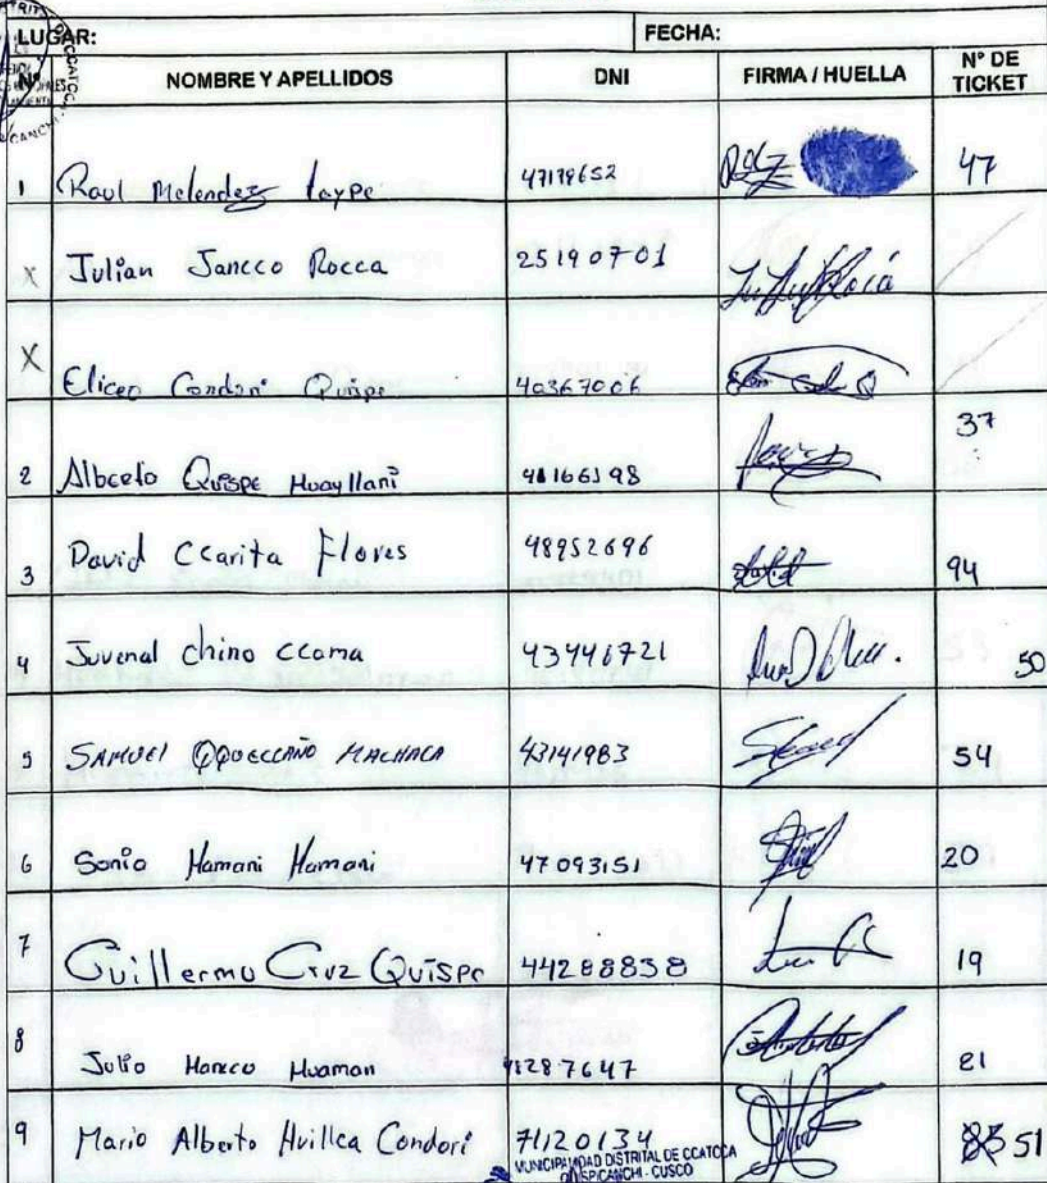 LUGAR: FECHA:
Nº NOMBRE Y APELLIDOS DNI FIRMA / HUELLA Nº DE TICKET
1 Raul Melendez Laype 47179652 47
X Julian Jancco Rocca 25190701
X Eliceo Condori Quispe 40367006
2 Alberto Quispe Huayllani 37
3 David Ccarita Flores 48952696 94
4 Juvenal chino ccoma 43446721 50
5 SAMUEl QQUECCAÑO MACHACA 43141983 54
6 Sonia Mamani Mamani 47093151 20
7 Guillermo Cruz Quispe 44288838 19
8 Julio Mancco Huaman 21
9 Mario Alberto Huillca Condori 71120134 51
MUNICIPALIDAD DISTRITAL DE CCATCCA
QUISPICANCHI - CUSCO